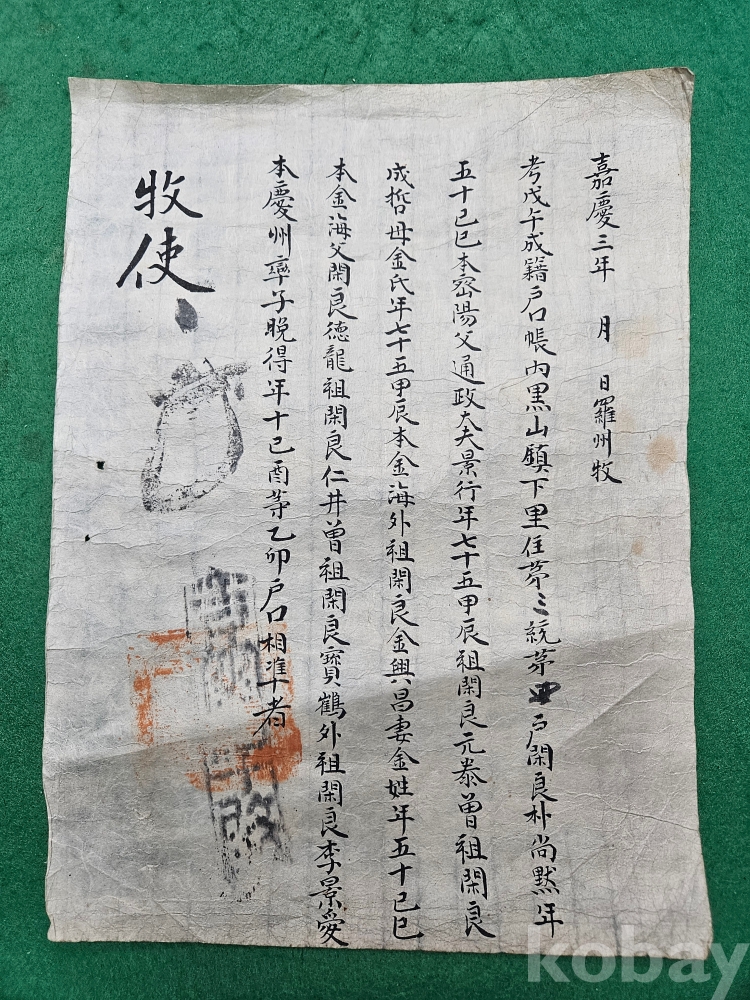 嘉慶三年 月 日羅州牧
考戊午成籍戶口帳內黑山鎮下里住苐三統苐 戶閑良朴尚黙年
五十己巳本密陽父通政大夫景行年七十五甲辰祖閑良元泰曾祖閑良
成哲母金氏年七十五甲辰本金海外祖閑良金興昌妻金姓年五十己巳
本金海父閑良德龍祖閑良仁井曾祖閑良寶鶴外祖閑良李景愛
本慶州率子晩得年十己酉等乙卯戶口相准者
牧使
kobay